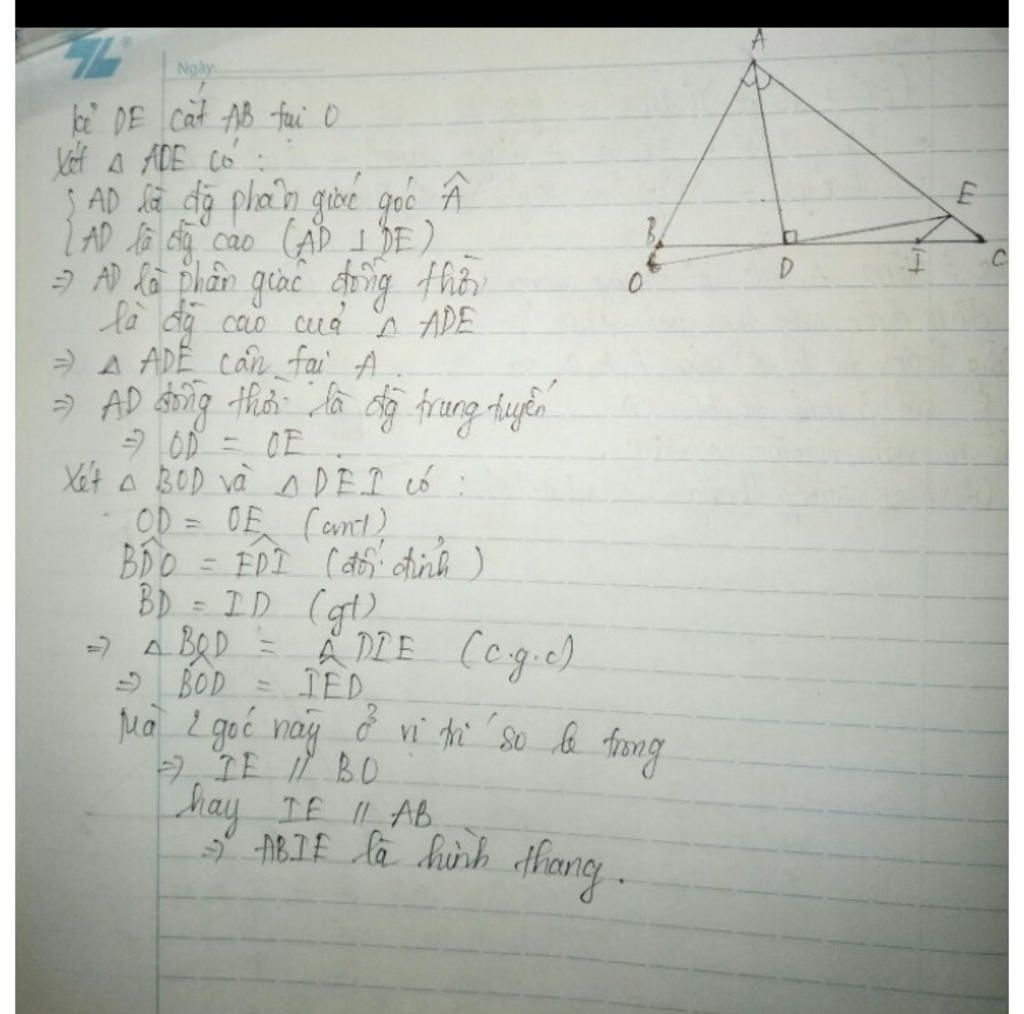 Ngày
kẻ DE cắt AB tại O
Xét △ ADE có :
{ AD là đg phân giác góc Â
{ AD là đg cao (AD ⊥ DE)
⇒ AD là phân giác đồng thời
là đg cao của △ ADE
⇒ △ ADE cân tại A.
⇒ AD đồng thời là đg trung tuyến
⇒ OD = OE.
Xét △ BOD và △ DEI có :
OD = OE (cmt)
BD̂O = ED̂I (đối đỉnh)
BD = ID (gt)
⇒ △ BOD = △ DIE (c.g.c)
⇒ BÔD = IÊD
Mà 2 góc này ở vị trí so le trong
⇒ IE // BO
hay IE // AB
⇒ ABIE là hình thang.
A
E
B
O
D
I
C